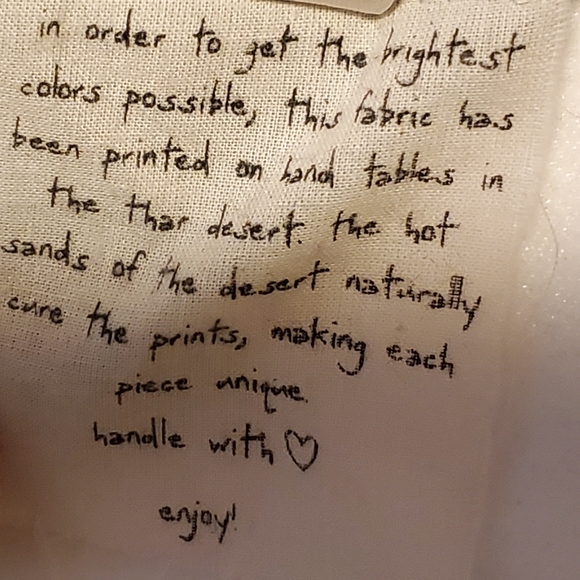 in order to get the brightest
colors possible, this fabric has
been printed on hand tables in
the thar desert. the hot
sands of the desert naturally
cure the prints, making each
piece unique.
handle with ♡
enjoy!